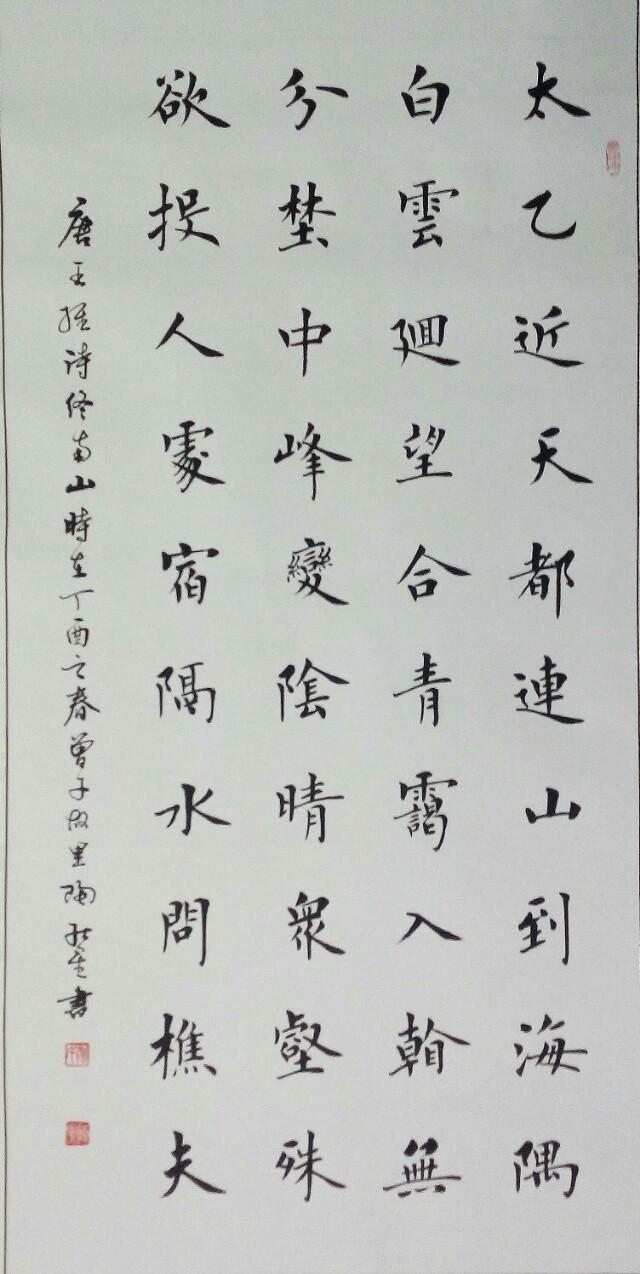 太乙近天都連山到海隅
白雲廻望合青靄入看無
分埜中峰變陰晴衆壑殊
欲投人處宿隔水問樵夫
唐王維诗终南山時在丁酉之春曾子故里陶書